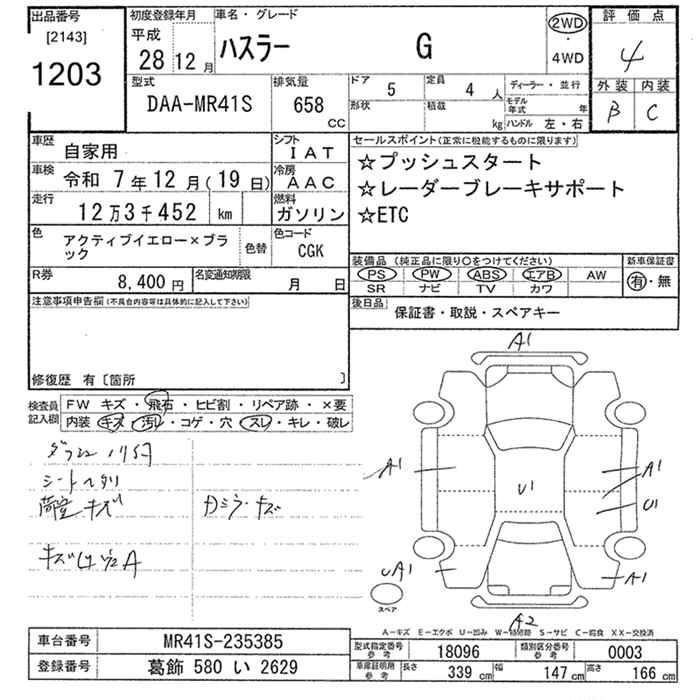 出品番号
[2143]
1203
初度登録年月
平成
28 12月
車名・グレード
ハスラー G
2WD
・
4WD
評価点
4
外装 内装
B C
型式
DAA-MR41S
排気量
658
CC
ドア 5
定員 4 人
形状
積載 kg
ディーラー・並行
モデル年式 年
ハンドル 左・右
車歴
自家用
シフト
IAT
車検
令和 7年12月(19日)
冷房
AAC
走行
12万3千452 km
燃料
ガソリン
色
アクティブイエロー×ブラック
色替
色コード
CGK
R券
8,400円
名変通知期限
月 日
セールスポイント(正常に機能するものに限ります)
☆プッシュスタート
☆レーダーブレーキサポート
☆ETC
装備品(純正品に限り○をつけてください)
PS PW ABS エアB AW
SR ナビ TV カワ
新車保証書
有・無
後日品
保証書・取説・スペアキー
注意事項申告欄(不具合内容等は具体的に記入して下さい)
修復歴 有〔箇所 〕
検査員記入欄
FW キズ・飛石・ヒビ割・リペア跡・×要
内装 キズ・汚レ・コゲ・穴・スレ・キレ・破レ
シートヘタリ
荷室キズ
カミラーキズ
A1
A1
A1
U1
U1
A1
A1
A2
スペア
A-キズ E-エクボ U-凹み W-補修跡 S-サビ C-腐食 XX-交換済
車台番号
MR41S-235385
登録番号
葛飾 580 い 2629
型式指定番号
参考
18096
類別区分番号
参考
0003
車庫証明用
参考
長さ 339 cm
幅 147 cm
高さ 166 cm